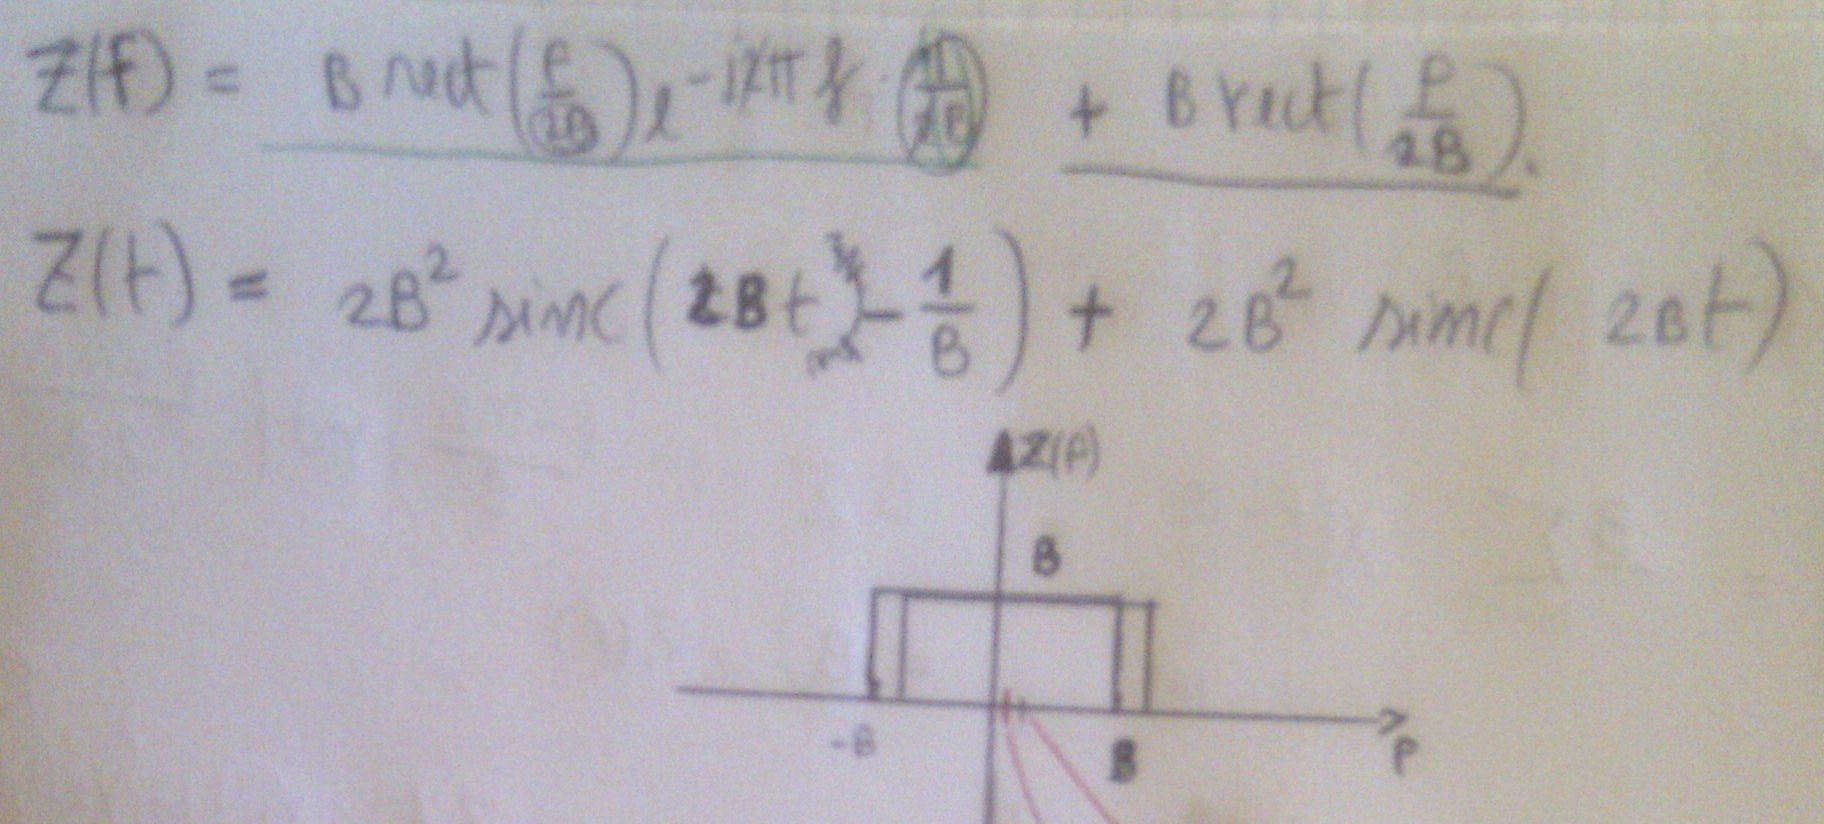 Z(f) = B rect(f/2B) e^-i2πf · (1/2B) + B rect(f/2B).
Z(t) = 2B² sinc(2Bt - 1/B) + 2B² sinc(2Bt)
Z(f)
B
-B B f